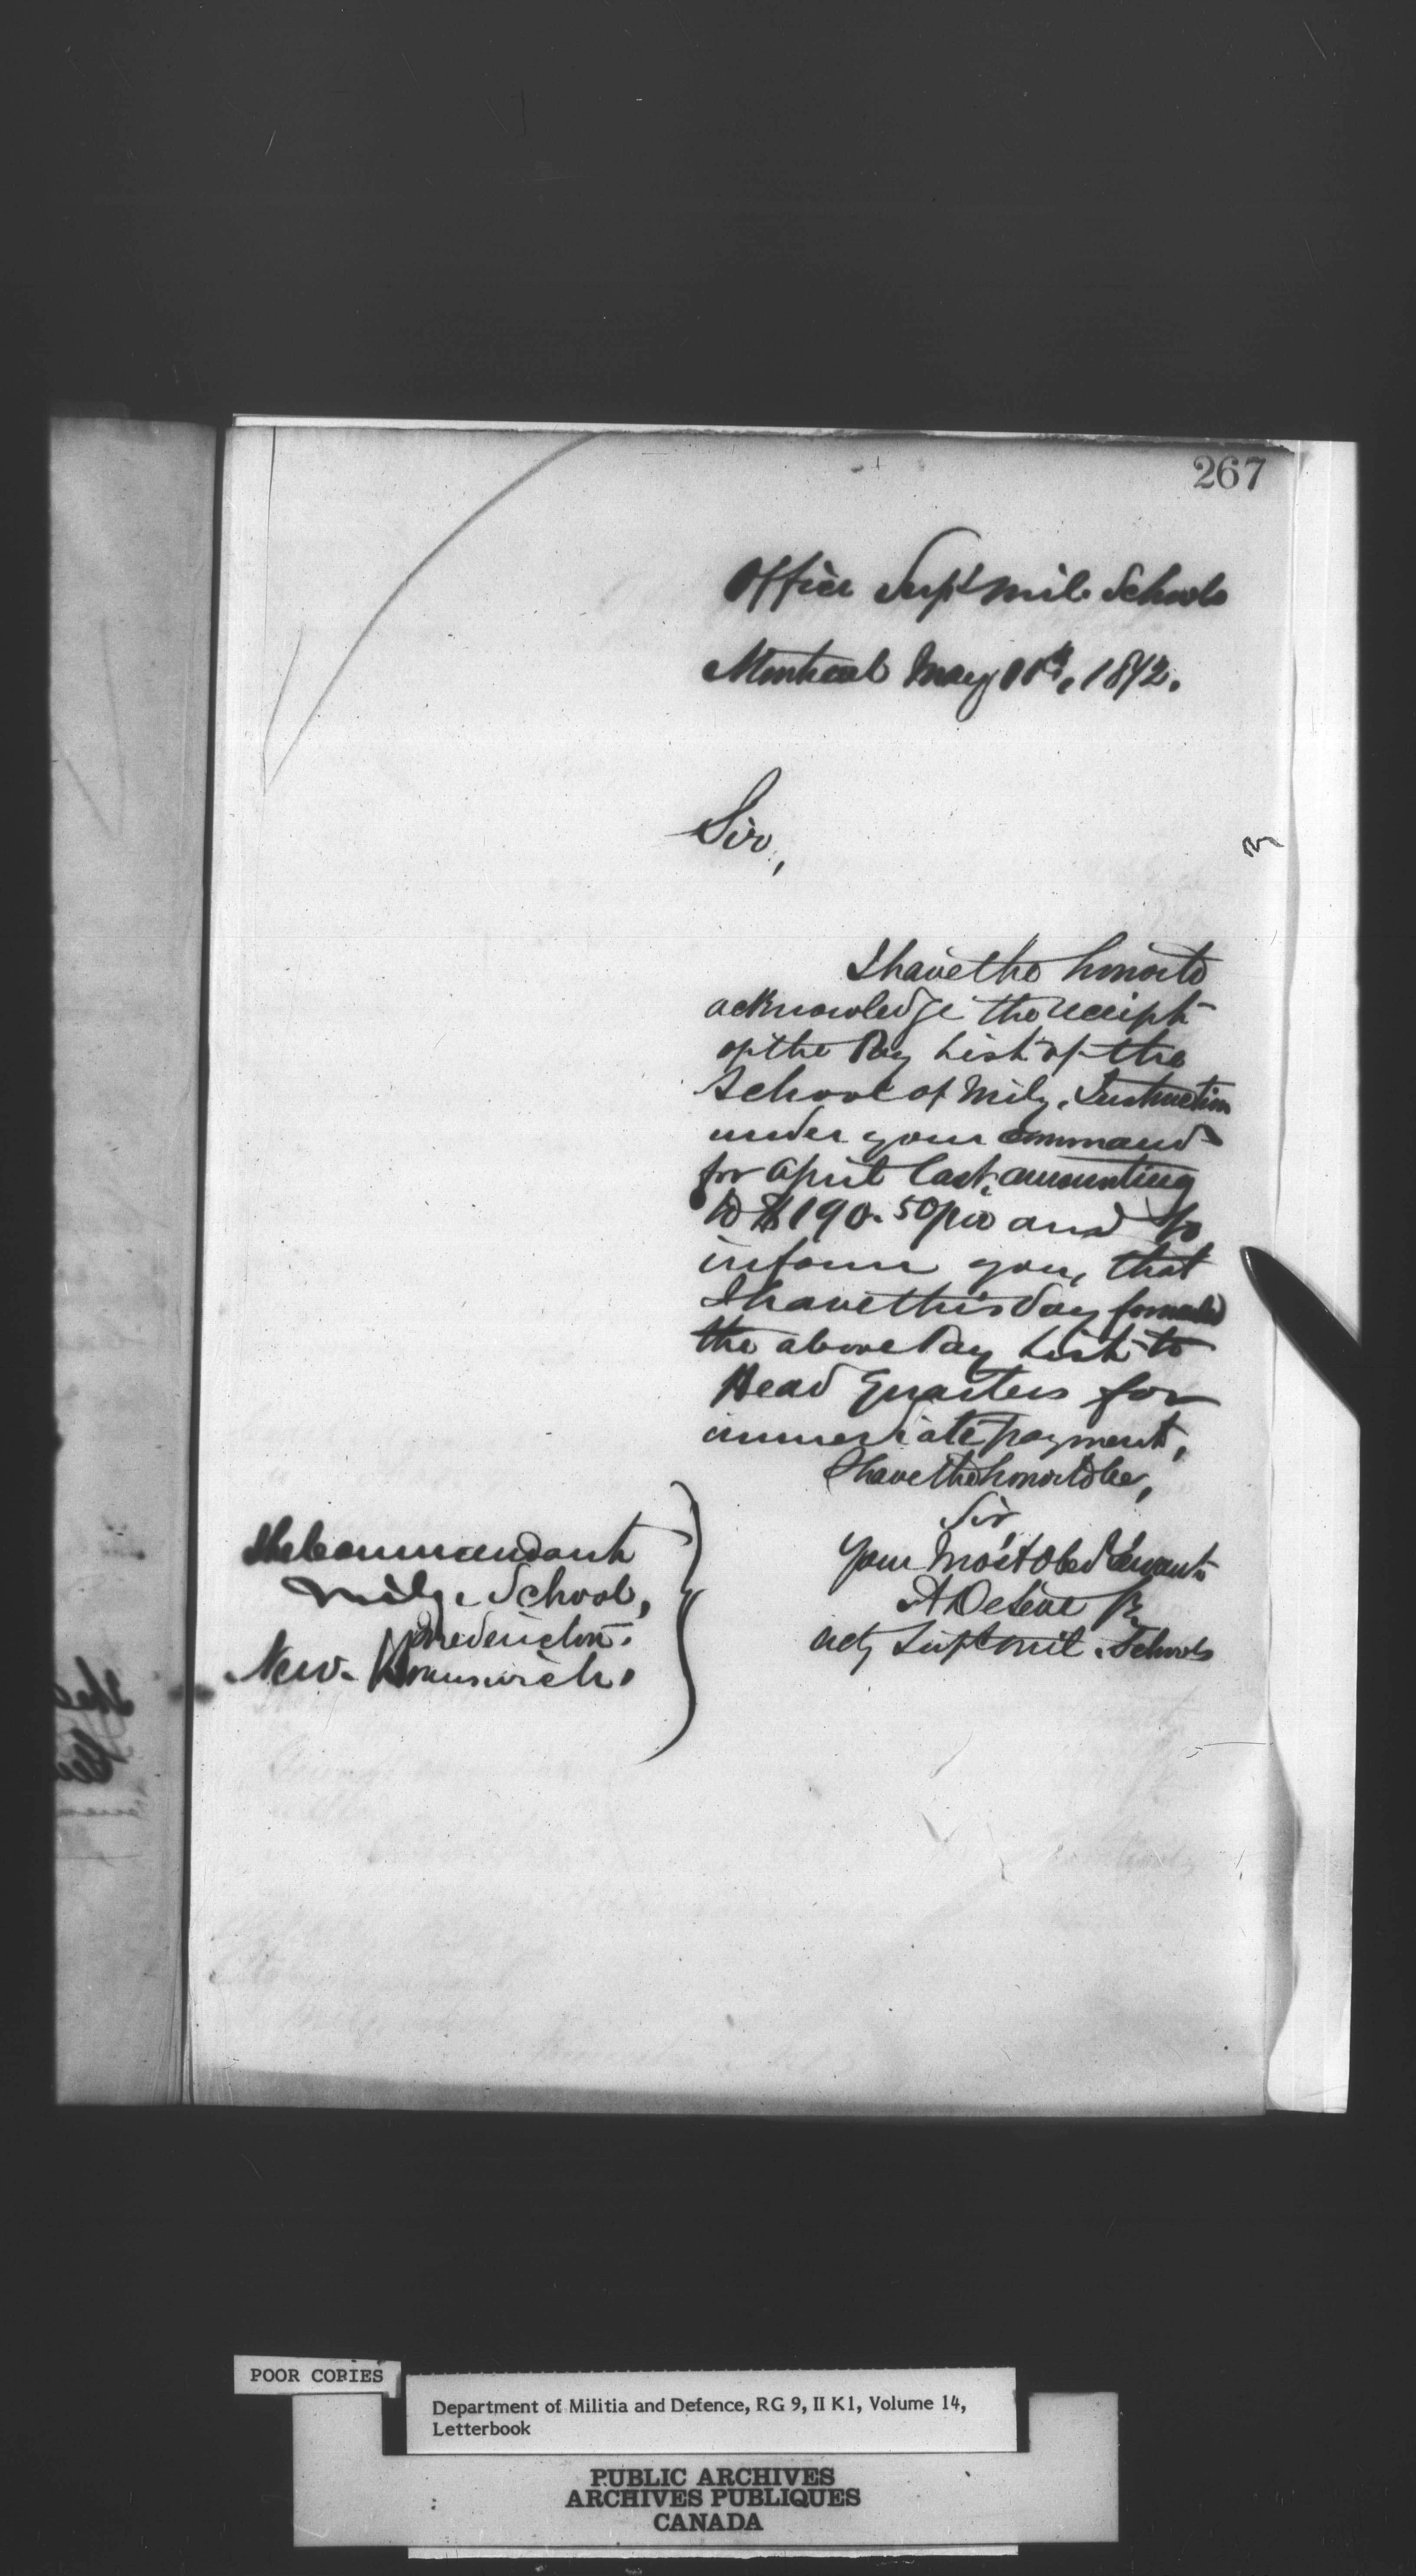 267
Office Supt Mil. Schools
Montreal May 11th, 1872.
Sir,
I have the honor to
acknowledge the receipt
of the Pay List of the
School of Mily. Instruction
under your command
for April last, amounting
to $190.50 and to
inform you, that
I have this day forwarded
the above Pay List to
Head Quarters for
immediate payment,
I have the honor to be,
Sir
Your Most Obed Servant
Actg Supt Mil. Schools
The Commandant
Mily. School,
Fredericton.
New. Brunswick.
POOR COPIES
Department of Militia and Defence, RG 9, II K1, Volume 14,
Letterbook
PUBLIC ARCHIVES
ARCHIVES PUBLIQUES
CANADA